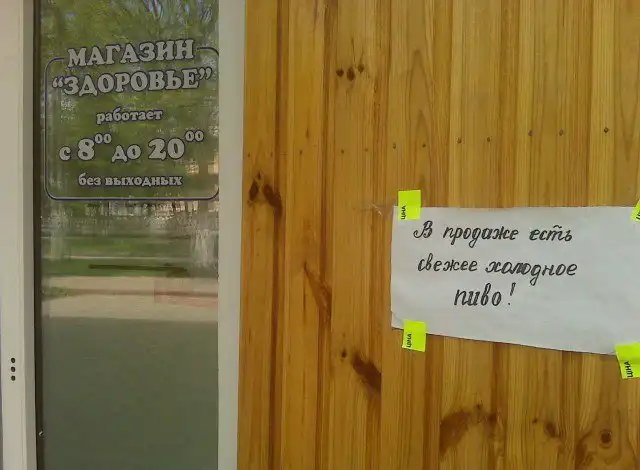 МАГАЗИН
“ЗДОРОВЬЕ”
работает
с 8⁰⁰ до 20⁰⁰
без выходных
В продаже есть
свежее холодное
пиво!
ЦІНА
ЦІНА
ЦІНА